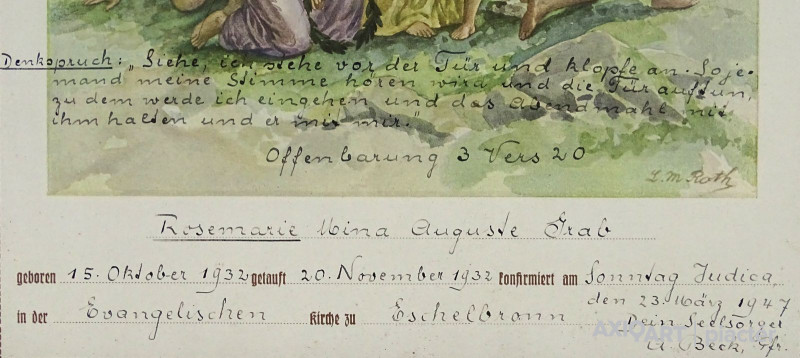 Denkspruch: „Siehe, ich stehe vor der Tür und klopfe an. So je-
mand meine Stimme hören wird und die Tür auftun,
zu dem werde ich eingehen und das Abendmahl mit
ihm halten und er mit mir."
Offenbarung 3 Vers 20
L. M. Roth
Rosemarie Mina Auguste Grab
geboren 15. Oktober 1932 getauft 20. November 1932 konfirmiert am Sonntag Judica,
den 23. März 1947
in der Evangelischen Kirche zu Eschelbronn
Dein Seelsorger
A. Beck, Pfr.